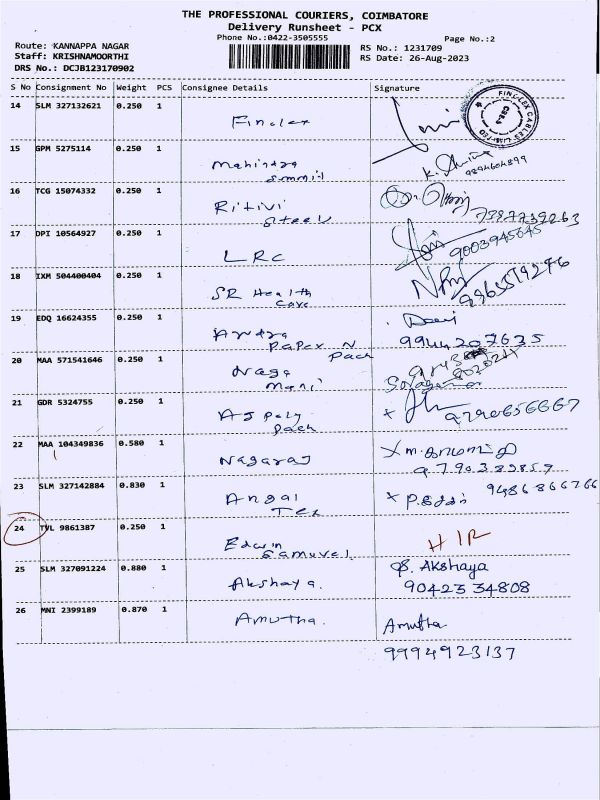 THE PROFESSIONAL COURIERS, COIMBATORE
Delivery Runsheet - PCX
Phone No.:0422-3505555
Page No.:2
Route: KANNAPPA NAGAR
RS No.: 1231709
Staff: KRISHNAMOORTHI
RS Date: 26-Aug-2023
DRS No.: DCJB123170902
S No Consignment No Weight PCS Consignee Details Signature
14 SLM 327132621 0.250 1
Finolex
FINOLEX CABLES LIMITED
15 GPM 5275114 0.250 1
Mahindra
Summit
9894604899
16 TCG 15074332 0.250 1
Ritivi
Steel
7387739263
17 DPI 10564927 0.250 1
LRC
9003945645
18 IXM 504400404 0.250 1
SR Health
Care
19 EDQ 16624355 0.250 1
Devi
Paper N
Pack
9944207635
20 MAA 571541646 0.250 1
Naga
Mani
21 GDR 5324755 0.250 1
AJ Poly
Pack
9790656667
22 MAA 104349836 0.580 1
Nagaraj
9790383859
23 SLM 327142884 0.830 1
Angal
Tex
9486866766
24 TVL 9861387 0.250 1
Edwin
Samuvel.
25 SLM 327091224 0.880 1
Akshaya.
S. Akshaya
90423 34808
26 MNI 2399189 0.870 1
Amutha.
Amutha
9994923137